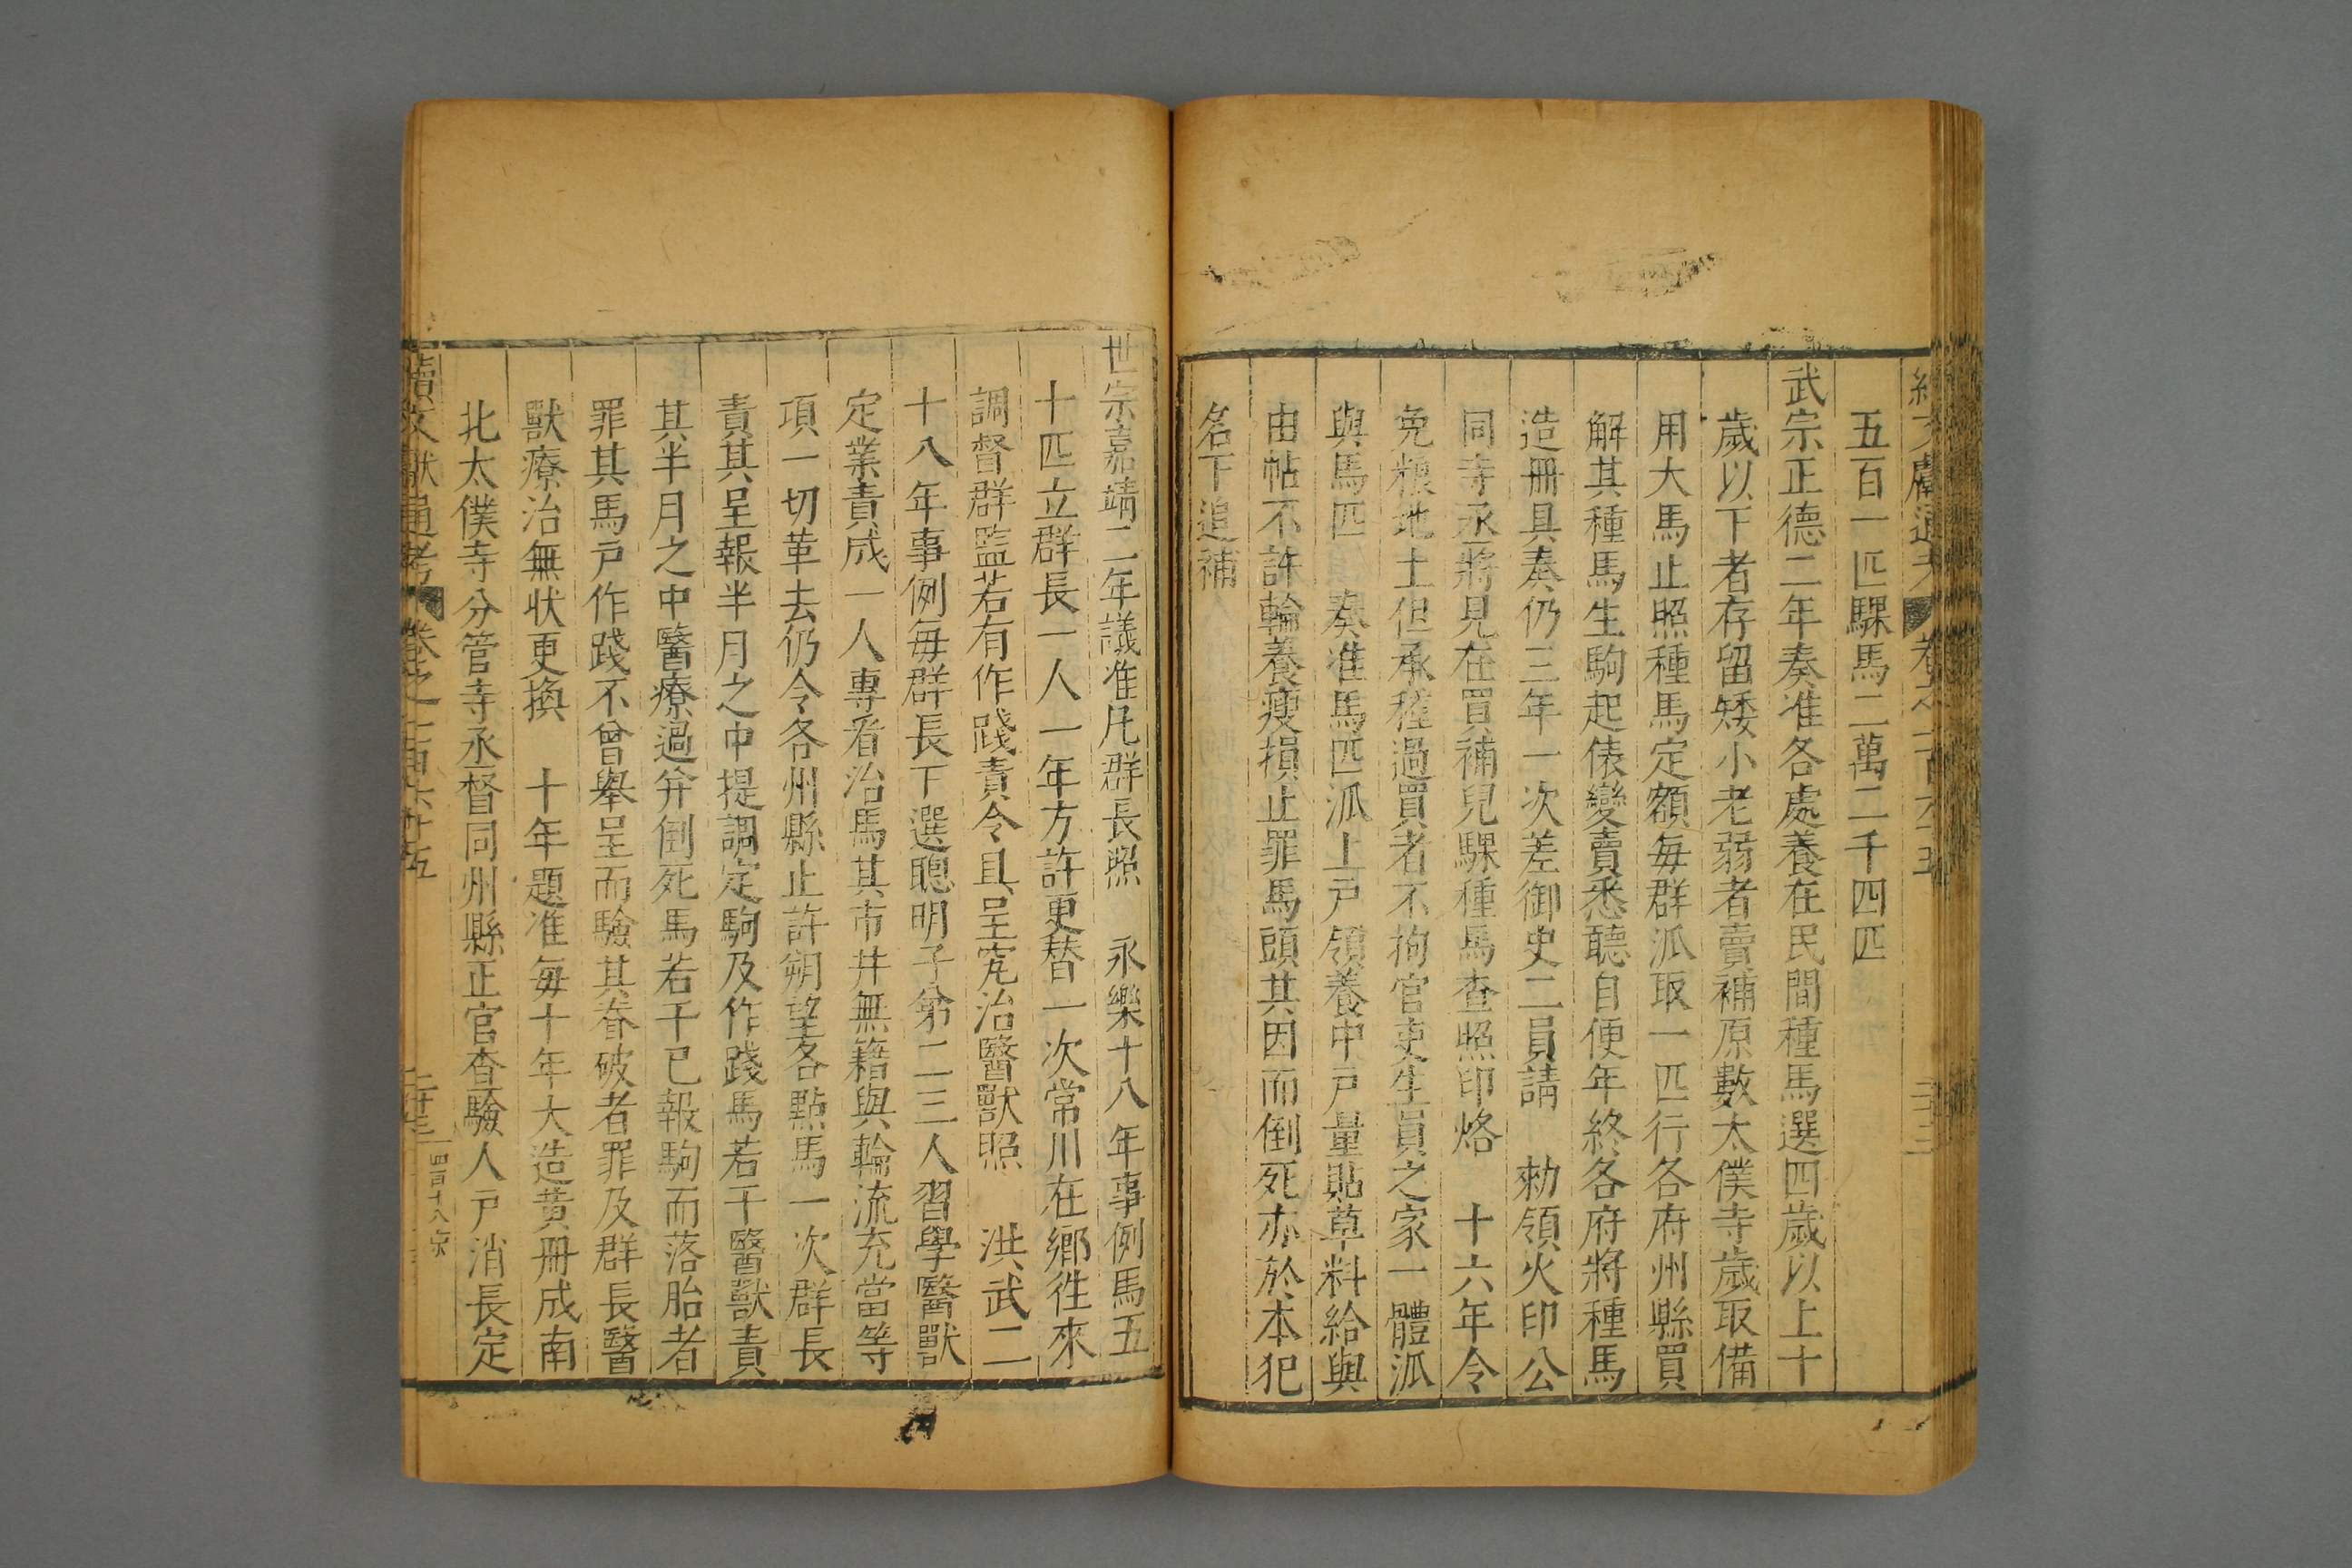 五百一匹騍馬二萬二千四匹
武宗正德二年奏准各處養在民間種馬選四歲以上十
歲以下者存留矮小老弱者賣補原數太僕寺歲取備
用大馬止照種馬定額每群派取一匹行各府州縣買
解其種馬生駒起俵變賣悉聽自便年終各府將種馬
造冊具奏仍三年一次差御史二員請 勑領火印公
同寺丞將見在買補兒騍種馬查照印烙 十六年令
免粮地土但承種過買者不拘官吏生員之家一體派
與馬匹 奏准馬匹派上戶領養中戶量貼草料給與
由帖不許輪養瘦損止罪馬頭其因而倒死亦於本犯
名下追補
世宗嘉靖二年議准凡群長照 永樂十八年事例馬五
十匹立群長一人一年方許更替一次常川在鄉徃來
調督群監若有作踐責令具呈究治醫獸照 洪武二
十八年事例每群長下選聰明子弟二三人習學醫獸
定業責成一人專看治馬其市井無籍與輪流充當等
項一切革去仍令各州縣止許朔望各點馬一次群長
責其呈報半月之中提調定駒及作踐馬若干醫獸責
其半月之中醫療過并倒死馬若干已報駒而落胎者
罪其馬戶作踐不曾舉呈而驗其脊破者罪及群長醫
獸療治無狀更換 十年題准每十年大造黃冊成南
北太僕寺分管寺丞督同州縣正官查驗人戶消長定
續文獻通考 卷之一百六十五